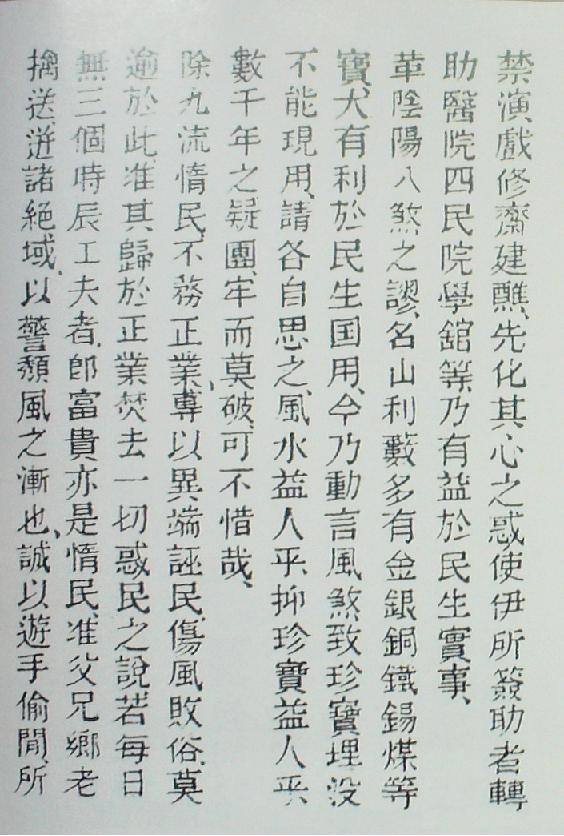 禁演戲修齋建醮、先化其心之惑使伊所簽助者轉
助醫院四民院學舘等、乃有益於民生實事、
革陰陽八煞之謬、名山利藪多有金銀銅鐵錫煤等
寶、大有利於民生国用、今乃動言風煞致珍寶埋沒
不能現用、請各自思之、風水益人乎、抑珍寶益人乎
數千年之疑團、牢而莫破、可不惜哉、
除九流惰民、不務正業、專以異端誣民、傷風敗俗、莫
逾於此、准其歸於正業焚去一切惑民之說若每日
無三個時辰工夫者、即富貴亦是惰民准父兄鄉老
擒送迸諸絕域、以警頽風之漸也、誠以遊手偷閒、所